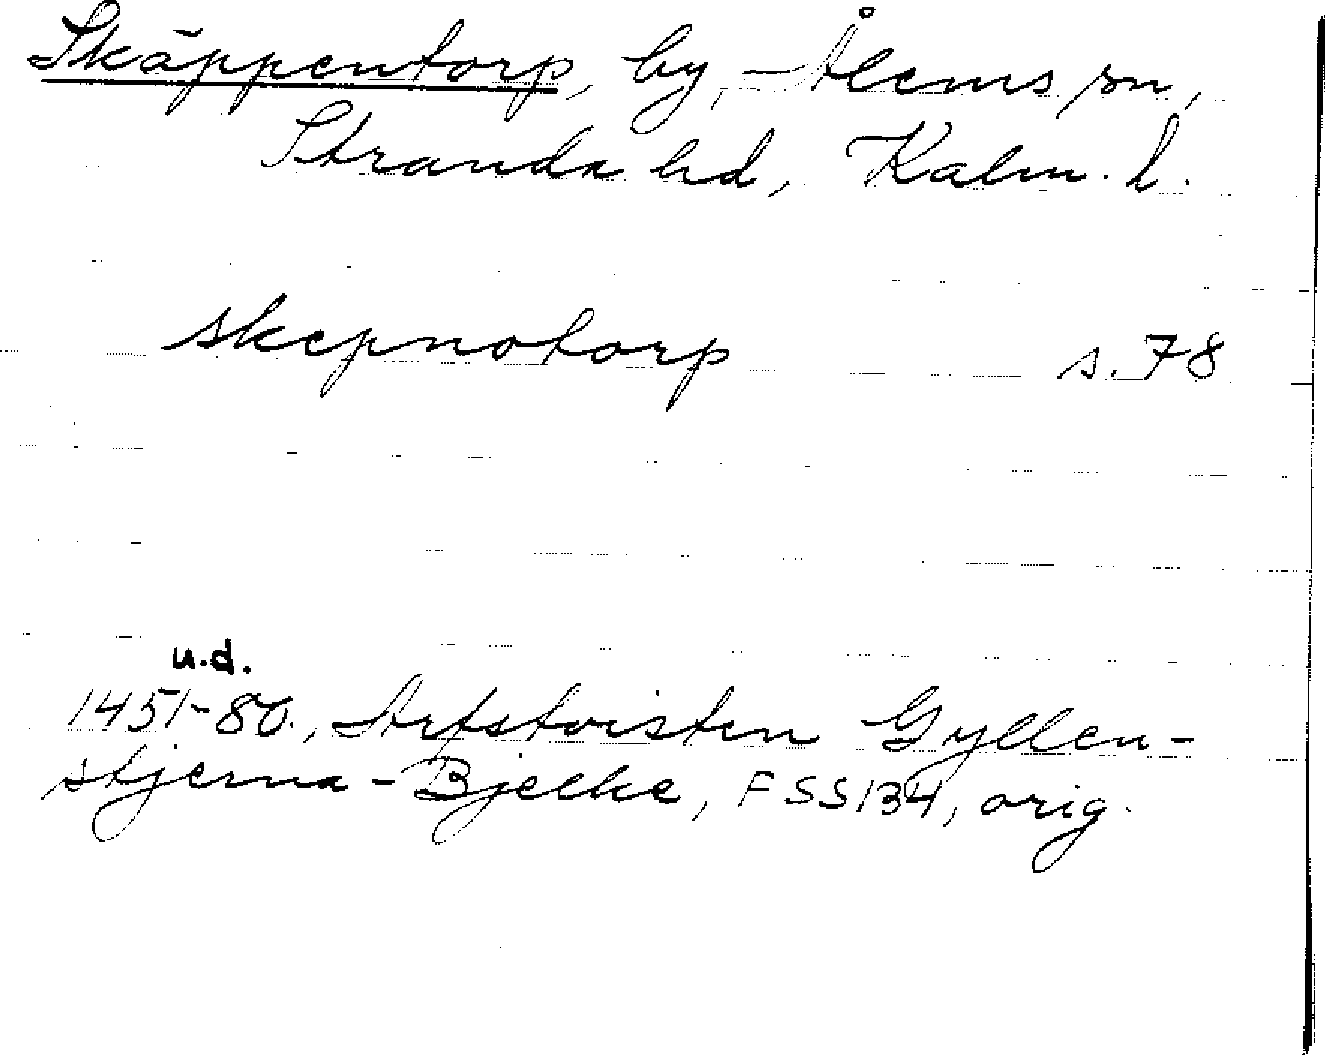 Skäppentorp, by, Ålems sn,
Stranda hd, Kalm. l.
skepnotorp s. 78
u.d.
1451-80., Arfstvisten Gyllen-
stjerna-Bjelke, FSS134, orig.